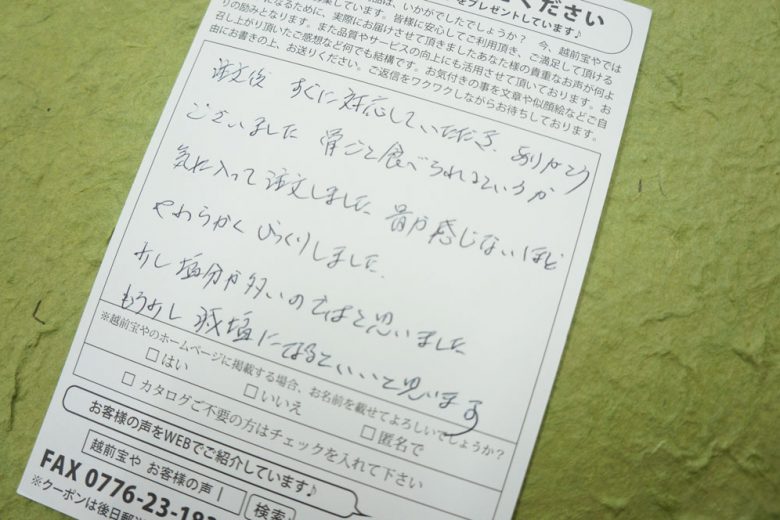 ください
をプレゼントしています♪
いかがでしたでしょうか？ 今、越前宝やでは
ています。皆様に安心してご利用頂き、ご満足して頂ける
になるために、実際にお届けさせて頂きましたあなた様の貴重なお声が何よ
りの励みとなります。また品質やサービスの向上にも活用させて頂いております。お
召し上がり頂いたご感想など何でも結構です。お気付きの事を文章や似顔絵などご自
由にお書きの上、お送りください。ご返信をワクワクしながらお待ちしております。
注文後 すぐに対応していただき、ありがとう
ございました 骨ごと食べられるというのが
気に入って注文しました 骨が感じないほど
やわらかく びっくりしました。
少し塩分が多いのではと思いました
もう少し減塩になるといいと思います
※越前宝やのホームページに掲載する場合、お名前を載せてよろしいでしょうか？
□はい □いいえ □匿名で
□ カタログご不要の方はチェックを入れて下さい
お客様の声をWEBでご紹介しています♪
越前宝や お客様の声 検索
FAX 0776-23-18
※クーポンは後日郵